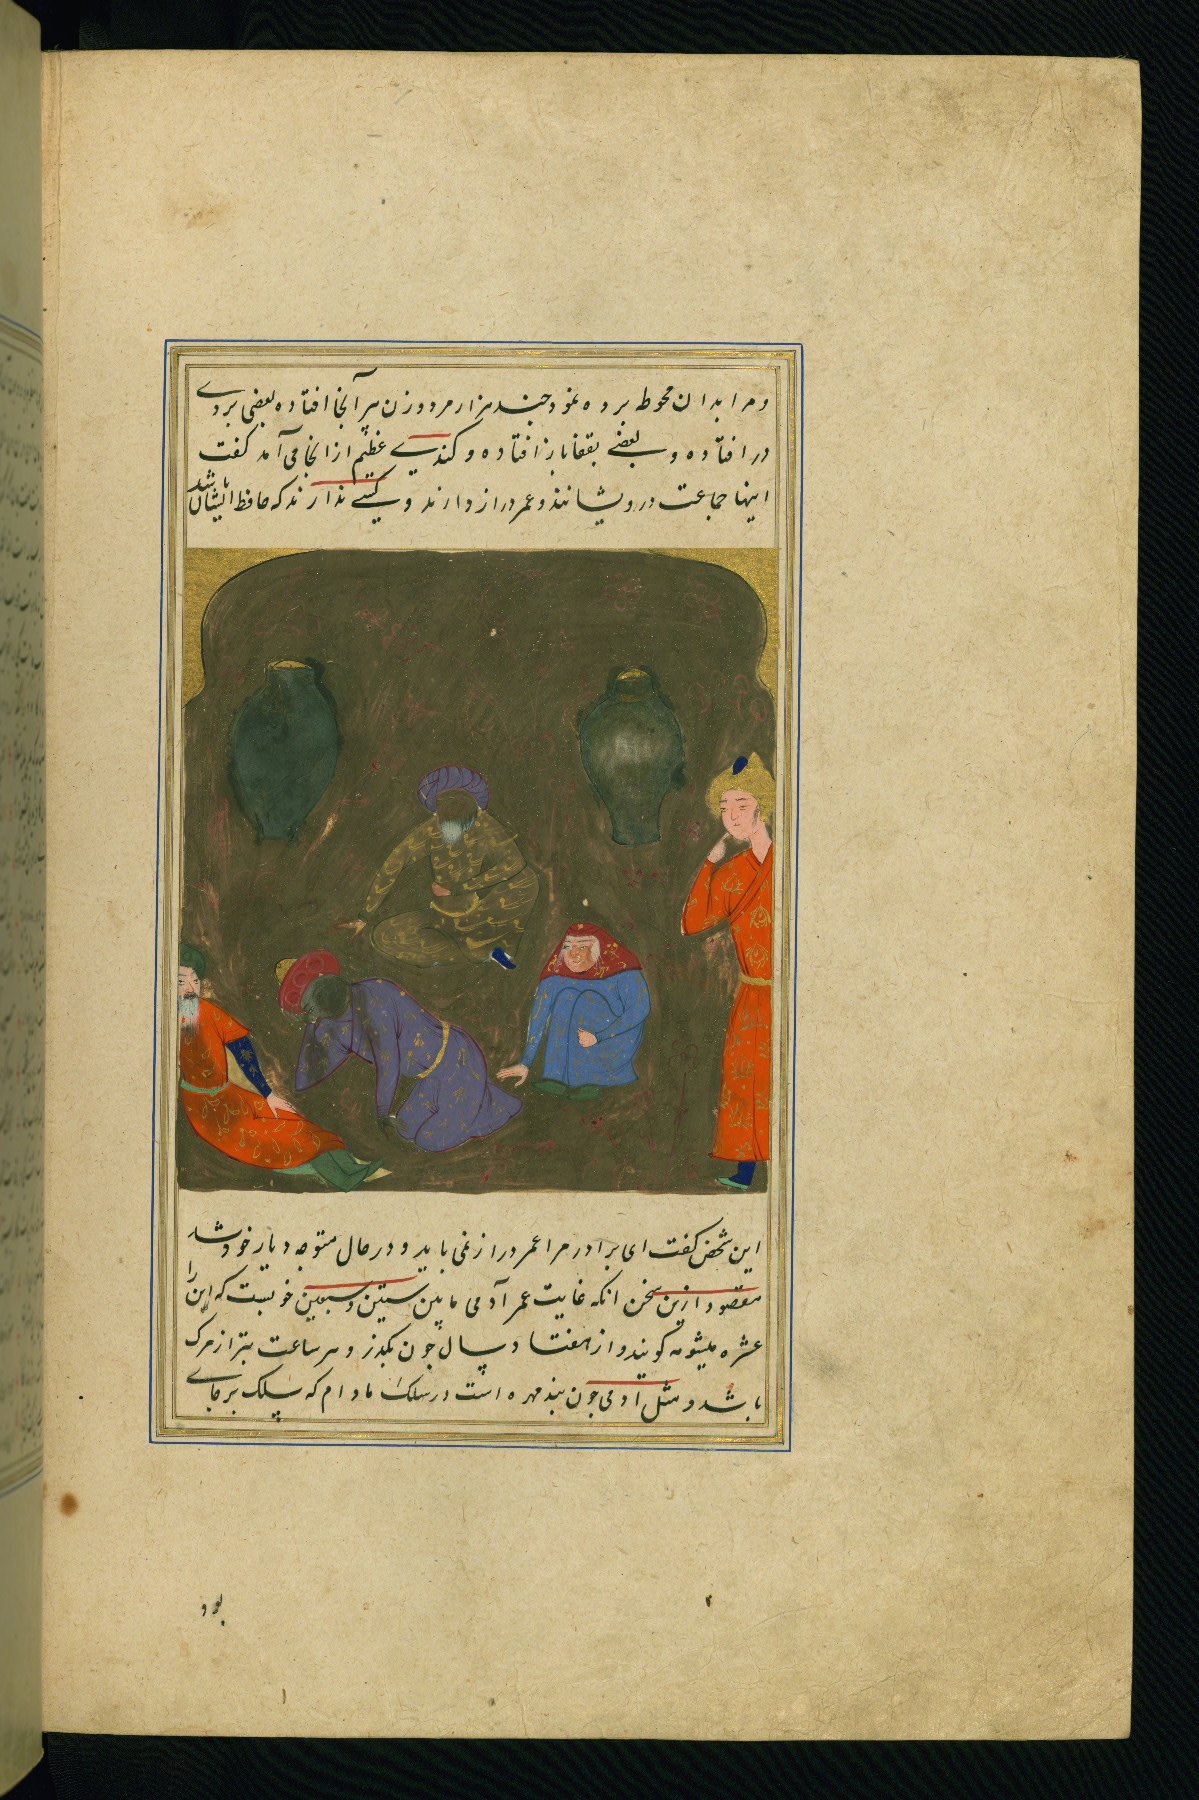 و مرا بدان محوطه برد و نمود چند هزار مرد و زن پیر آنجا افتاده بعضی بروی
در افتاده و بعضے بقفا باز افتاده و کندیے عظیم از انجا می آمد گفت
اینها جماعت درویشانند و عمر دراز دارند و کسیے ندارند که حافظ ایشان باشد
این شخص گفت ای برادر مرا عمر دراز نمی باید و در حال متوجه دیار خود شد
مقصود ازین سخن انکه غایت عمر آدمی مابین ستین و سبعین خوبست که این را
عشره میشومه گویند و از هفتاد سال چون بگذرد هر ساعت بتر از مرگ
باشد و مثل آدمی چون بند مهره است در سلک مادام که سلک بر جای
بود